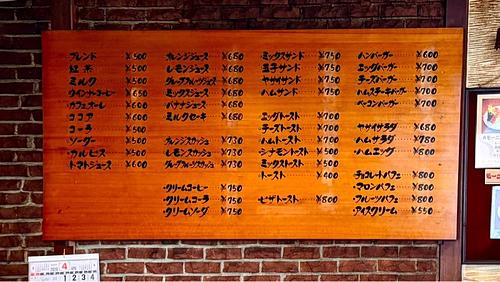 ブレンド ¥500
紅茶 ¥500
ミルク ¥500
ウインナーコーヒー ¥650
カフェオーレ ¥600
ココア ¥600
コーラ ¥500
ソーダー ¥500
カルピス ¥500
トマトジュース ¥600
オレンジジュース ¥680
レモンジュース ¥680
グレープフルーツジュース ¥680
ミックスジュース ¥680
バナナジュース ¥680
ミルクセーキ ¥680
オレンジスカッシュ ¥730
レモンスカッシュ ¥730
グレープフルーツスカッシュ ¥730
クリームコーヒー ¥750
クリームコーラ ¥750
クリームソーダ ¥750
ミックスサンド ¥750
玉子サンド ¥750
ヤサイサンド ¥750
ハムサンド ¥750
エッグトースト ¥700
チーズトースト ¥700
ハムトースト ¥700
シナモントースト ¥500
ミックストースト ¥500
トースト ¥400
ピザトースト ¥800
ハンバーガー ¥600
エッグバーガー ¥700
チーズバーガー ¥700
ハムステーキバーガー ¥700
ベーコンバーガー ¥700
ヤサイサラダ ¥680
ハムサラダ ¥780
ハムエッグ ¥800
チョコレートパフェ ¥800
マロンパフェ ¥800
フルーツパフェ ¥800
アイスクリーム ¥550
4
1 2 3 4